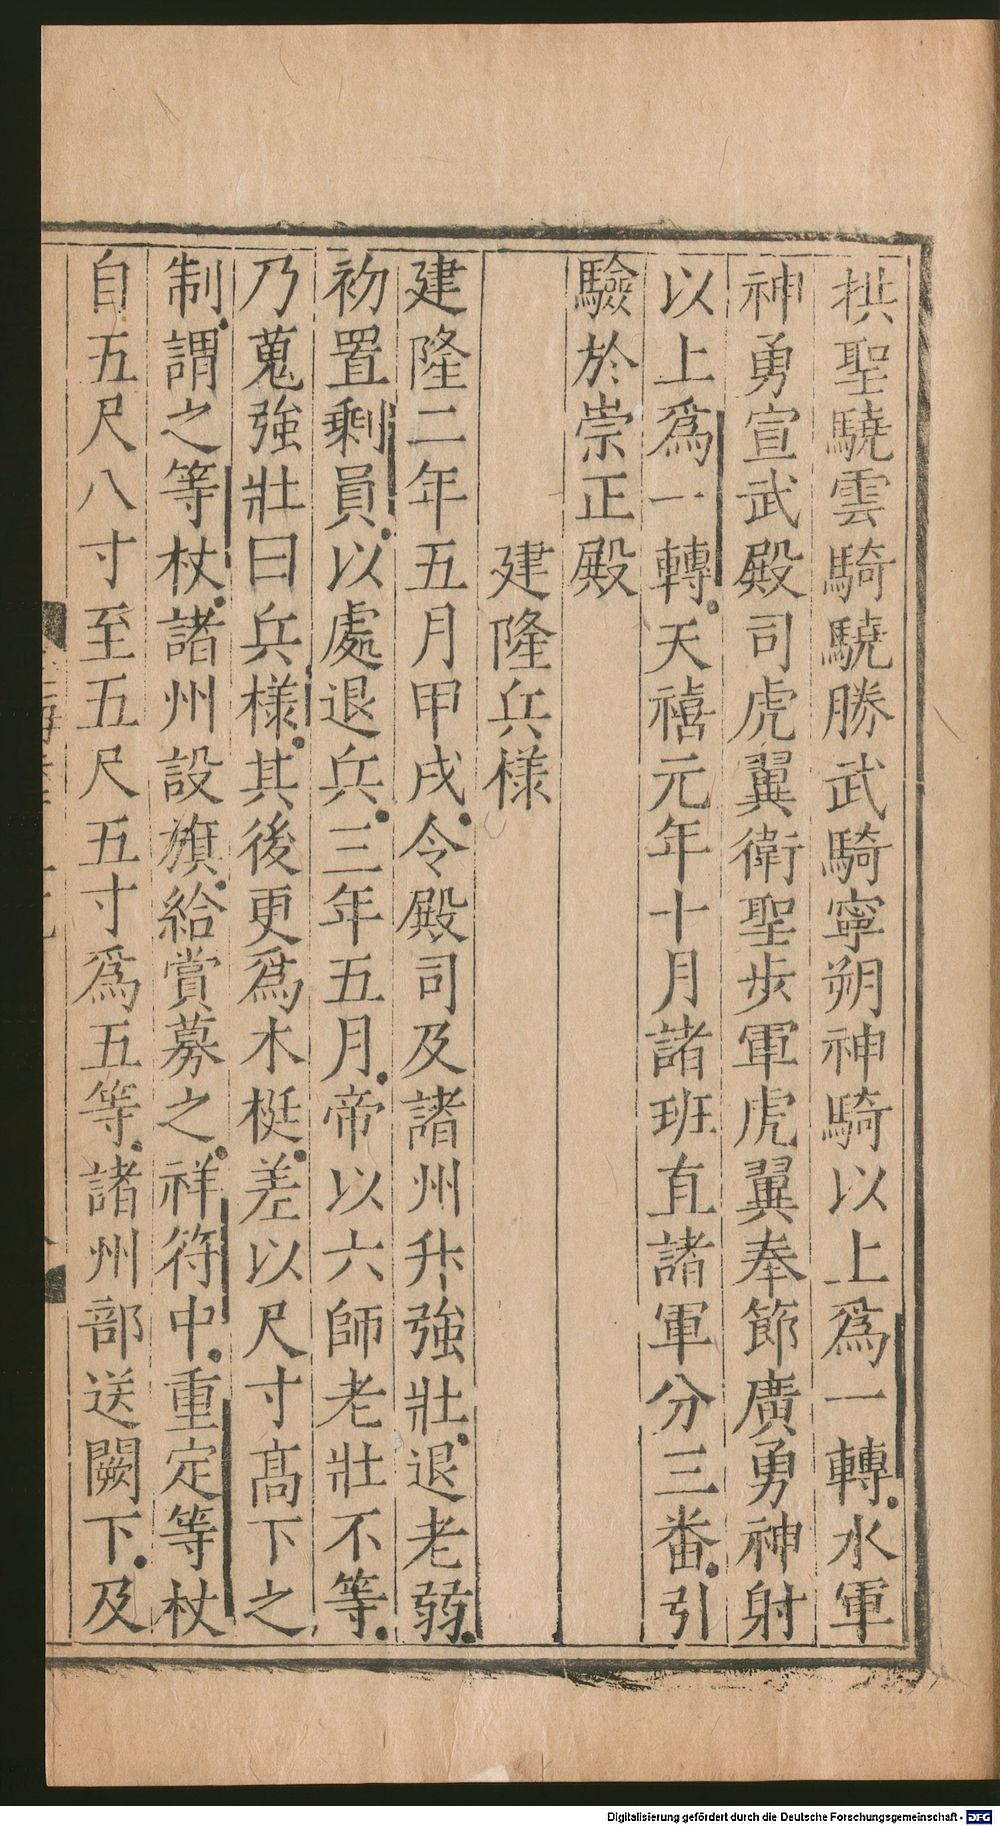 拱聖驍雲騎驍勝武騎寧朔神騎以上爲一轉水軍
神勇宣武殿司虎翼衛聖步軍虎翼奉節廣勇神射
以上爲一轉天禧元年十月諸班直諸軍分三番引
驗於崇正殿
建隆兵樣
建隆二年五月甲戌令殿司及諸州升強壯退老弱
初置剩員以處退兵三年五月帝以六師老壯不等
乃蒐強壯曰兵樣其後更爲木梃差以尺寸高下之
制謂之等杖諸州設旗給賞募之祥符中重定等杖
自五尺八寸至五尺五寸爲五等諸州部送闕下及
Digitalisierung gefördert durch die Deutsche Forschungsgemeinschaft - DFG